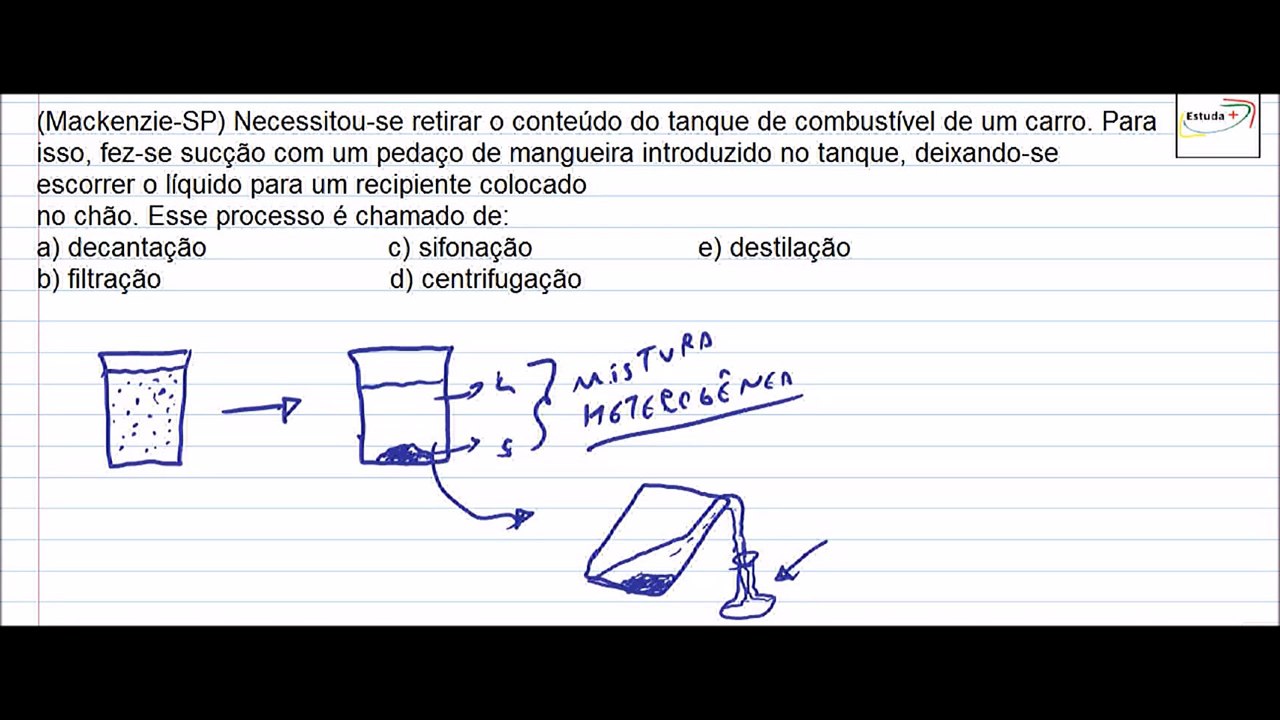 (Mackenzie-SP) Necessitou-se retirar o conteúdo do tanque de combustível de um carro. Para
isso, fez-se sucção com um pedaço de mangueira introduzido no tanque, deixando-se
escorrer o líquido para um recipiente colocado
no chão. Esse processo é chamado de:
a) decantação c) sifonação e) destilação
b) filtração d) centrifugação
Estuda +
L
S
MISTURA
HETEROGÊNEA